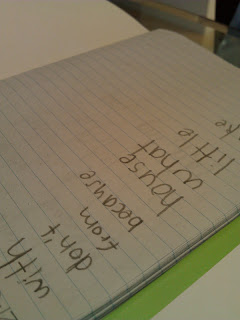 little
what
house
because
from
don't
with